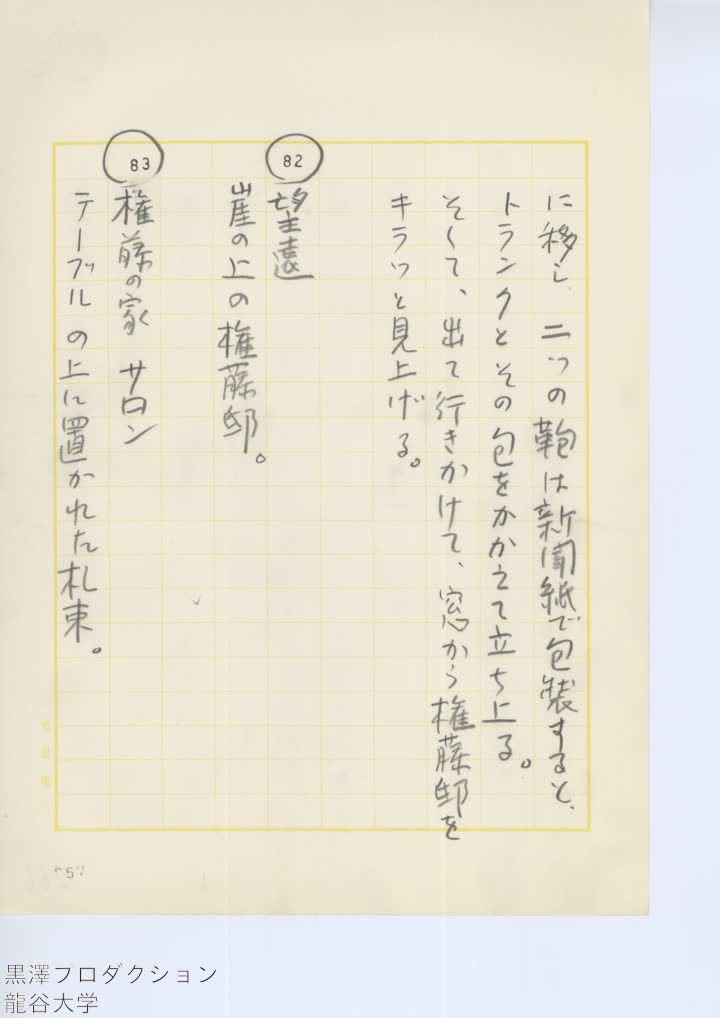 に移し、二つの鞄は新聞紙で包装すると、
トランクとその包をかかえて立ち上る。
そして、出て行きかけて、窓から権藤邸を
キラッと見上げる。
82
望遠
崖の上の権藤邸。
83
権藤の家 サロン
テーブルの上に置かれた札束。
黒澤プロダクション
龍谷大学